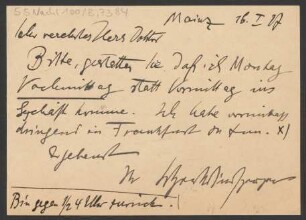 Mainz 16. I 07
Sehr verehrtester Herr Doktor
Bitte, gestatten Sie daß ich Montag
Nachmittag statt Vormittag ins
Geschäft komme. Ich habe vormittags
dringend in Frankfurt zu tun. x)
Ergebenst
Ihr
Bin gegen 1/2 4 Uhr zurück